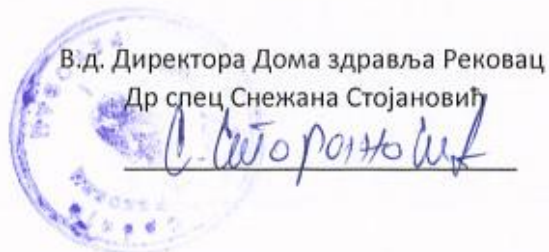 В.д. Директора Дома здравља Рековац
Др спец Снежана Стојановић
С. Стојановић